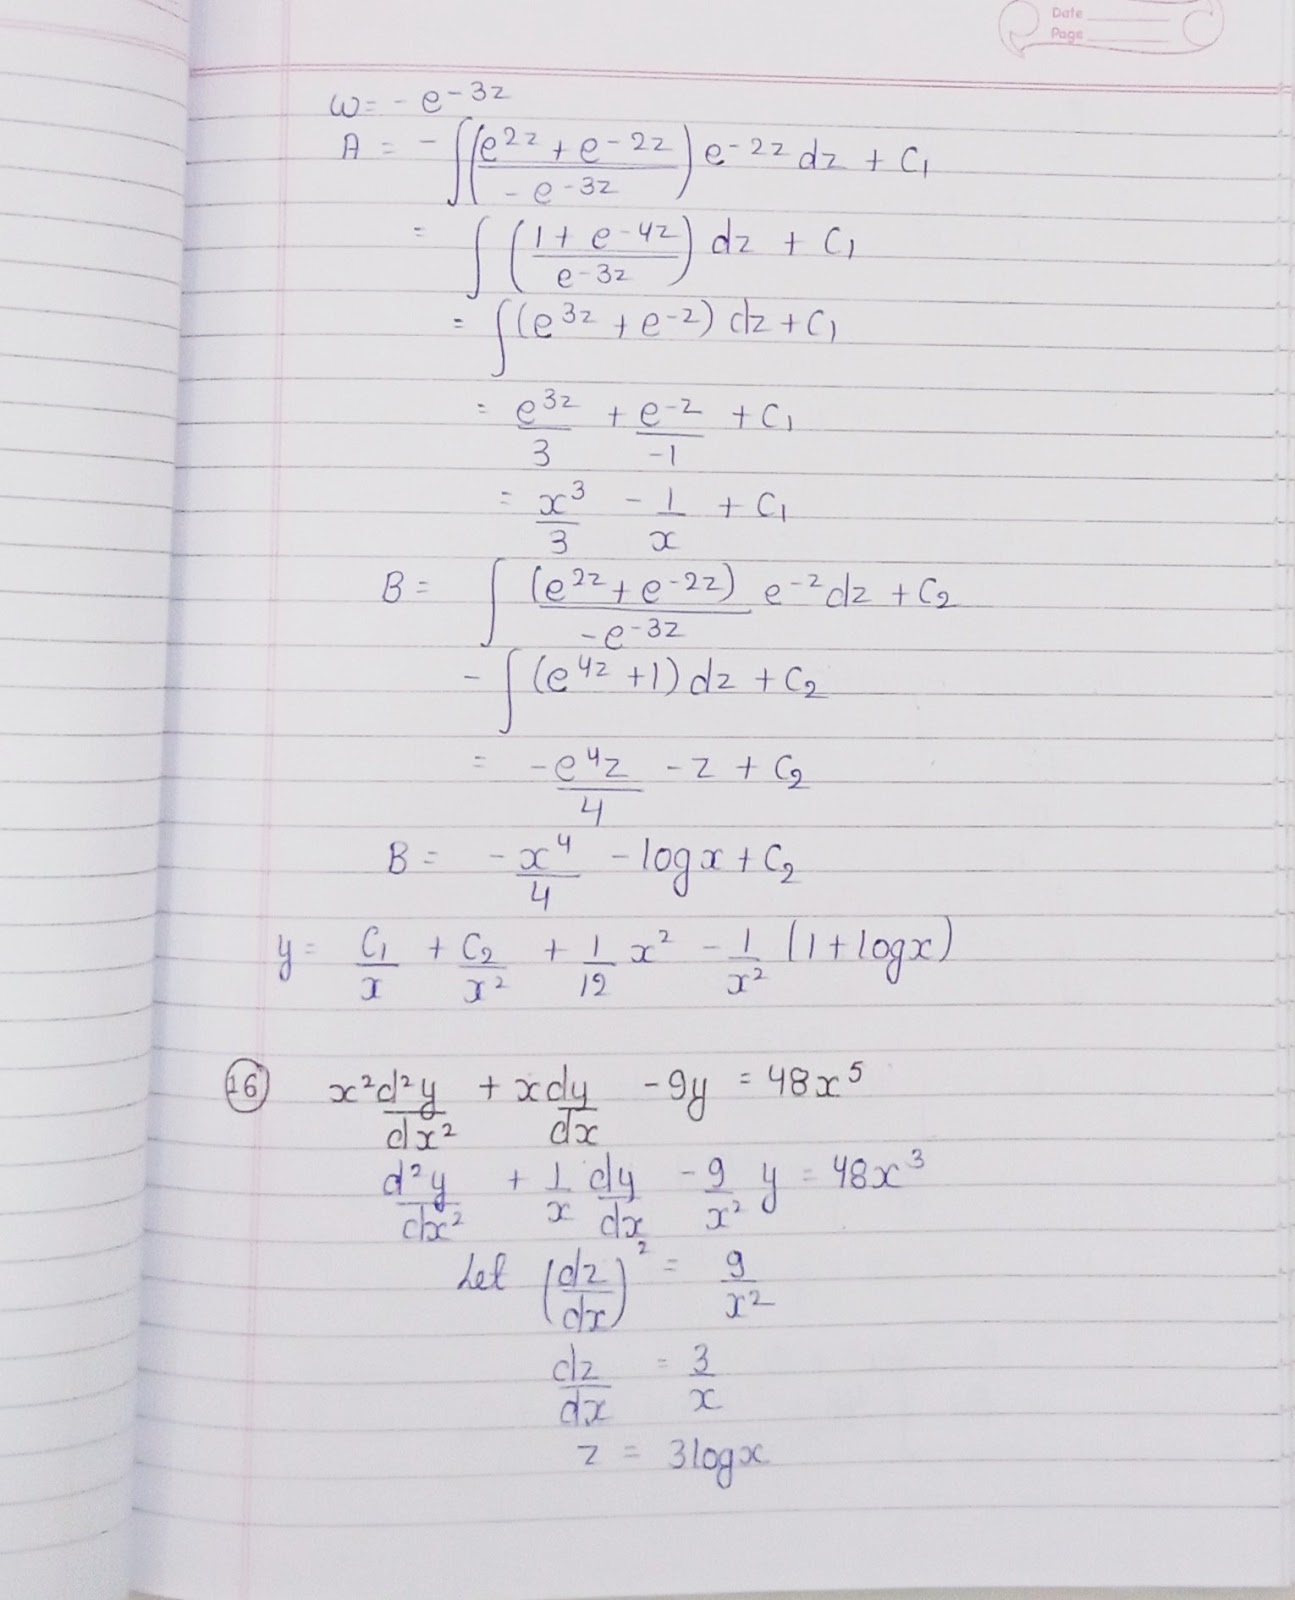 Date
Page
w = - e^-3z
A = - ∫ ((e^2z + e^-2z) / (- e^-3z)) e^-2z dz + C₁
= ∫ ((1 + e^-4z) / (e^-3z)) dz + C₁
= ∫ (e^3z + e^-z) dz + C₁
= e^3z / 3 + e^-z / -1 + C₁
= x³ / 3 - 1 / x + C₁
B = ∫ (e^2z + e^-2z) / (- e^-3z) e^-z dz + C₂
- ∫ (e^4z + 1) dz + C₂
= - e^4z / 4 - z + C₂
B = - x⁴ / 4 - log x + C₂
y = C₁ / x + C₂ / x² + 1 / 12 x² - 1 / x² (1 + log x)
16 x² d²y / dx² + x dy / dx - 9y = 48x⁵
d²y / dx² + 1 / x dy / dx - 9 / x² y = 48x³
Let (dz / dx)² = 9 / x²
dz / dx = 3 / x
z = 3 log x